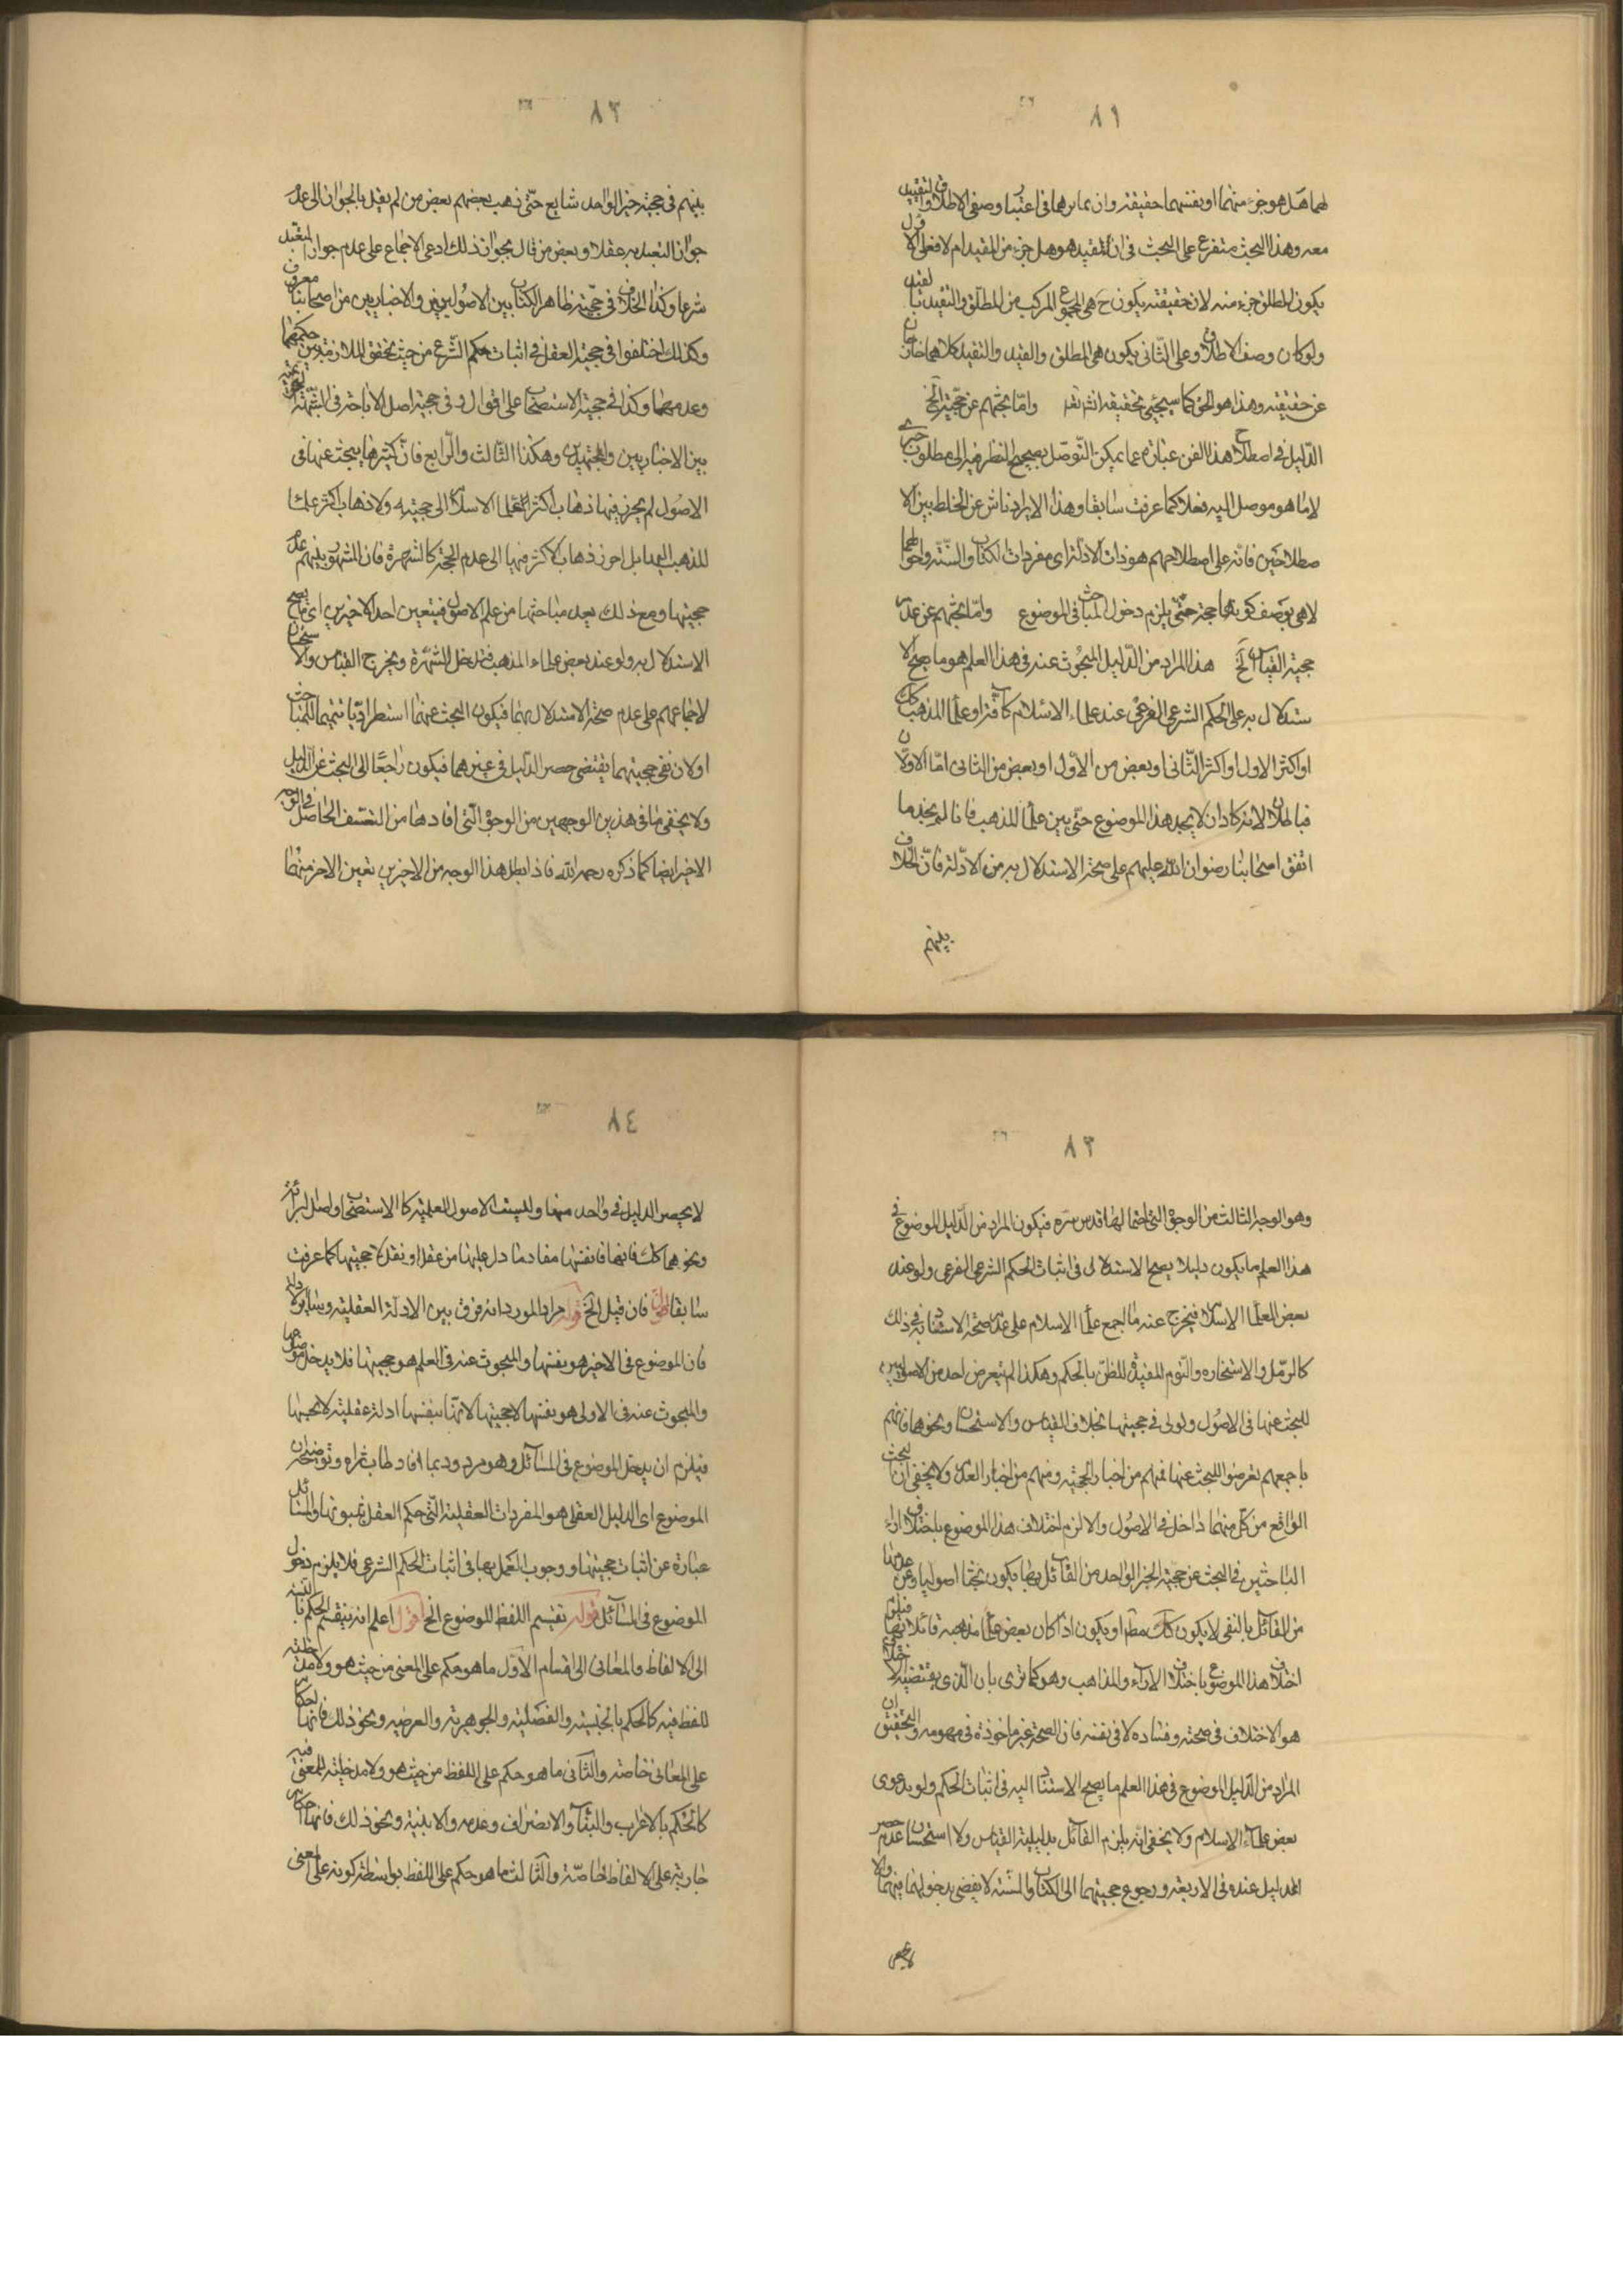 ٨١
لهما هل هو جزء منهما او نفسهما حقيقة وان تمايزهما فى اعتبار وصفى الاطلاق والتقييد
معه وهذا البحث متفرع على البحث فى ان التقييد هو هل جزء من المقيد ام لا فعلى الاول
يكون المطلق جزء منه لان حقيقته يكون ح هى المجموع المركب من المطلق والتقييد بالقيد
ولو كان وصف الاطلاق وعلى الثانى يكون هى المطلق والقيد والتقييد كلاهما خارجان
عن حقيقته وهذا هو الحق كما سيجئ تحقيقه انشا تعا واما بحثهم عن حجية الخ
الدليل فى اصطلاح هذا الفن عبارة عما يمكن التوصل بصحيح النظر فيه الى مطلوب خبرى
لا ما هو موصل اليه فعلا كما عرفت سابقا وهذا الايراد ناش عن الخلط بين الا
صطلاحين فانه على اصطلاحهم هو ذات الادلة اى مفردات الكتاب والسنة واحوالهما
لا هى بوصف كونها حجة حتى يلزم دخول المباحث فى الموضوع واما بحثهم عن عدم
حجية القياس الخ هذا المراد من الدليل المبحوث عنه فى هذا العلم هو ما صح الا
ستدلال به على الحكم الشرعى الفرعى عند علماء الاسلام كافة او علماء المذهب كك
او اكثر الاول او اكثر الثانى او بعض من الاول او بعض من الثانى اما الاولان
فباطلان لانه كاد ان لا يجد هذا الموضوع حتى بين علماء المذهب فانا لم نجد ما
اتفق اصحابنا رضوان الله عليهم على صحة الاستدلال به من الادلة فان الخلاف
بينهم
٨٢
بينهم فى حجية خبر الواحد شايع حتى ذهب بعضهم بعض من لم يقل بالجواز الى عدم
جواز التعبد به عقلا وبعض من قال بجواز ذلك ادعى الاجماع على عدم جواز التعبد
شرعا وكذا الخلاف فى حجية ظاهر الكتاب بين الاصوليين والاخباريين من اصحابنا معروف
وكذلك اختلفوا فى حجية العقل فى اثبات حكم الشرع من حيث تحقق الملازمة بين حكمهما
وعدمهما وكذا فى حجية الاستصحاب على اقوال وفى حجية اصل الاباحة فى الشبهة
بين الاخباريين والمجتهدين وهكذا الثالث والرابع فان كثيرها يبحث عنها فى
الاصول لم يحرز فيها ذهاب اكثر العلماء الاسلام الى حجيته ولا ذهاب اكثر علماء
المذهب اليها بل احرز ذهاب الاكثر فيها الى عدم الحجة كالشهرة فان المشهور بينهم عدم
حجيتها ومع ذلك يعد مباحثها من علم الاصول فيتعين احد الاخيرين اى ما يصح
الاستدلال به ولو عند بعض علماء المذهب فتدخل الشهرة ويخرج القياس والاستحسان
لاجماعهم على عدم صحة الاستدلال بهما فيكون البحث عنهما استطراديا تتميما للمباحث
او لان نفى حجيتهما يقتضى حصر الدليل فى غيرهما فيكون راجعا الى البحث عن الدليل
ولا يخفى ما فى هذين الوجهين من الوجوه التى افادها من التعسف الحاصل فى الوجه
الاخير ايضا كما ذكره رحمه الله فاذا بطل هذا الوجه من الاخيرين تعين الاخر منهما
٨٣
وهو الوجه الثالث من الوجوه التى احتمالها قدس سره فيكون المراد من الدليل الموضوع فى
هذا العلم ما يكون دليلا يصح الاستدلال فى اثبات الحكم الشرعى الفرعى ولو عند
بعض العلماء الاسلام فيخرج عنه ما اجمع علماء الاسلام على عدم صحة الاستناد به فى ذلك
كالرمل والاستخاره والنوم المفيدة للظن بالحكم وهكذا لم يتعرض احد من الاصوليين
للبحث عنها فى الاصول ولو لى فى حجيتها بخلاف القياس والاستحسان ونحوها فانهم
باجمعهم تعرضوا للبحث عنها فمنهم من اختار الحجية ومنهم من اختار العدم ولا يخفى ان البحث
الواقع من كل منهما داخل فى الاصول والا لزم اختلاف هذا الموضوع باختلاف اراء
الباحثين فى البحث عن حجية الخبر الواحد من القائل بها يكون بحثا اصوليا وعن عدمها
من القائل بالنفى لا يكون كك مطلقا او يكون اذا كان بعض علماء مذهبه قائلا بها فيلزم
اختلاف هذا الموضوع باختلاف الاراء والمذاهب وهو كما ترى بان الذى يقتضيه الاختلاف
هو الاختلاف فى صحته وفساده لا فى نفسه فان الصحة غير ماخوذة فى مفهومه والتحقيق ان
المراد من الدليل الموضوع فى هذا العلم ما يصح الاستناد اليه فى اثبات الحكم ولو بدعوى
بعض علماء الاسلام ولا يخفى انه يلزم القائل بدليلية القياس والاستحسان عدم حصر
الدليل عنده فى الاربعة ورجوع حجيتهما الى الكتاب والسنة لا يقضى بدخولهما فيهما والا
لا يحصر
٨٤
لا يحصر الدليل فى واحد منها وليست الاصول العملية كالاستصحاب واصل البرائة
ونحوهما كك فانها فى نفسها مفاد ما دل عليها من عقل او نقل لا حجيتها كما عرفت
سابقا قوله فان قيل الخ قوله مراد المورد انه فرق بين الادلة العقلية وساير الادلة
فان الموضوع فى الاخير هو نفسها والمبحوث عنه فى العلم هو حجيتها فلا يدخل موضوعها
والمبحوث عنه فى الاولى هو نفسها لا حجيتها لانها بنفسها ادلة عقلية لا بحجيتها
فيلزم ان يدخل الموضوع فى المسائل وهو مردود بما افاد طاب ثراه وتوضيحه ان
الموضوع اى الدليل العقلى هو المفردات العقلية التى حكم العقل بثبوتها والمسائل
عبارة عن اثبات حجيتها ووجوب العمل بها فى اثبات الحكم الشرعى فلا يلزم دخول
الموضوع فى المسائل قوله تقسيم اللفظ الموضوع الخ اقول اعلم انه ينقسم الحكم بالنسبة
الى الالفاظ والمعانى الى اقسام الاول ما هو حكم على المعنى من حيث هو ولا مدخلية
للفظ فيه كالحكم بالجنسية والفصلية والجوهرية والعرضيه ونحو ذلك فانها احكام
على المعانى خاصة والثانى ما هو حكم على اللفظ من حيث هو ولا مدخلية للمعنى فيه
كالحكم بالاعراب والبناء والانصراف وعدمه والابنية ونحو ذلك فانها احكام
جارية على الالفاظ خاصة والثالث ما هو حكم على اللفظ بواسطة كونه على المعنى